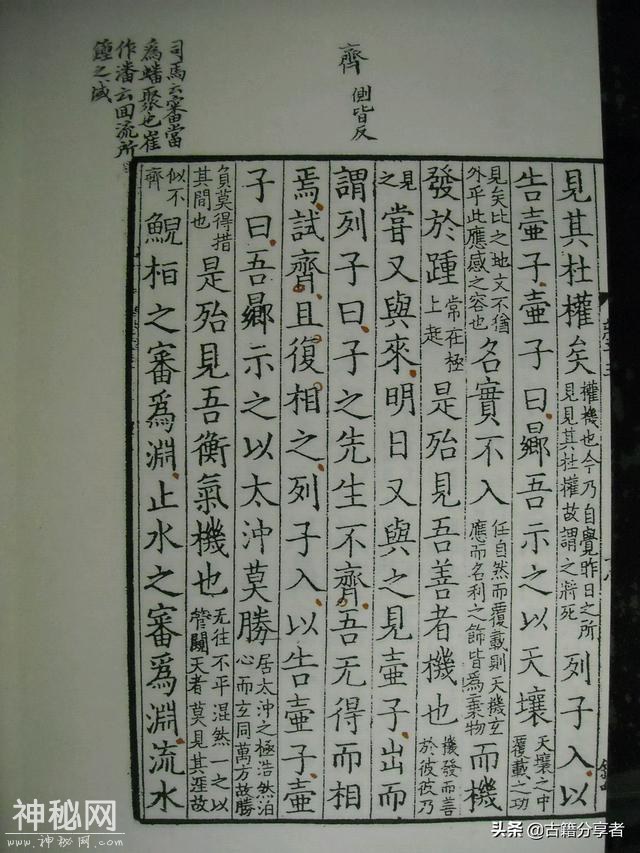 齊 側皆反
司馬云審當
爲蟠聚也崔
作潘云回流所
鍾之域
見其杜權矣 權機也今乃自覺昨日之所 見見其杜權故謂之將死 列子入以
告壺子壺子曰鄉吾示之以天壤 天壤之中 覆載之功
見矣比之地文不猶 外乎此應感之容也 名實不入 任自然而覆載則天機玄 應而名利之飾皆爲棄物 而機
發於踵 常在極 上起 是殆見吾善者機也 機發而善 於彼彼乃
見之 嘗又與來明日又與之見壺子出而
謂列子曰子之先生不齊吾无得而相
焉試齊且復相之列子入以告壺子壺
子曰吾鄉示之以太沖莫勝 居太沖之極浩然泊 心而玄同萬方故勝
負莫得措 其間也 是殆見吾衡氣機也 无往不平混然一之以 管闚天者莫見其涯故
似不 齊 鯢桓之審爲淵止水之審爲淵流水
神秘网
www.神秘网.com
头条 @古籍分享者